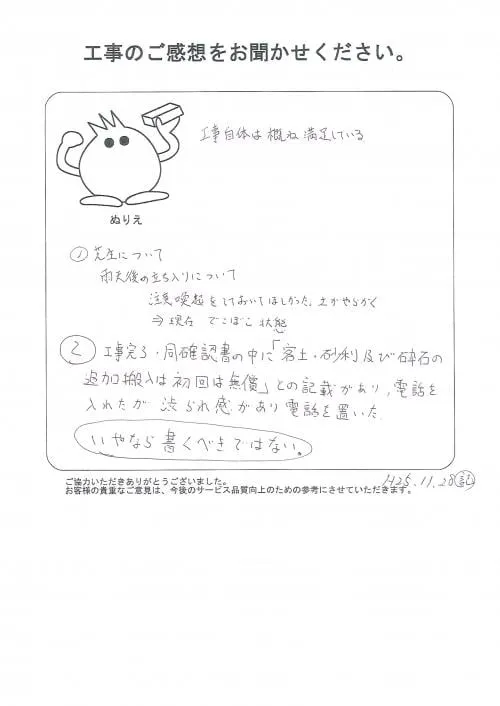 工事のご感想をお聞かせください。
工事自体は概ね満足している
ぬりえ
① 芝生について
雨天後の立ち入りについて
注意喚起をしておいてほしかった。土がやらかく
⇒ 現在 でこぼこ状態
② 工事完了・同確認書の中に「客土・砂利及び砕石の
追加搬入は初回は無償」との記載があり、電話を
入れたが 渋られ感があり電話を置いた.
いやなら書くべきではない。
ご協力いただきありがとうございました。
お客様の貴重なご意見は、今後のサービス品質向上のための参考にさせていただきます。
H25.11.28 記